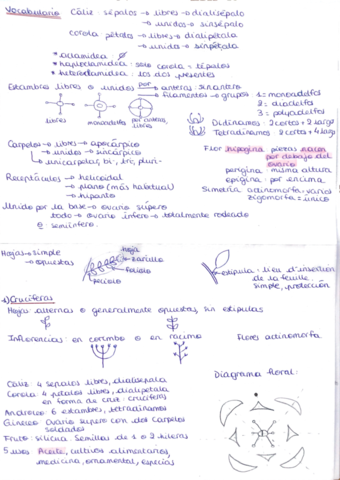 Vocabulario Cáliz: sépalos → libres → dialisépalo
→ unidos → sinsépalo
corola pétalos → libres → dialipétala
→ unida → sinpétala
* aclamidea ∅
* haploclamidea: solo corola = tépalos
* heteroclamidea: los dos presentes
Estambres libres o unidos por → anteras: sinantéreo
→ filamentos → grupos 1: monadelfos
2: diadelfos
3: polyadelfos
libres monadelfos por anteras, libres
Didínamos: 2 cortos + 2 largo
Tetradínamos 2 cortos + 4 largo
Carpelos → libres → apocárpico
→ unidos → sincárpico
→ unicarpelar, bi-, tri-, pluri-
Flor hipogina piezas nacen
por debajo del
ovario
perigina: misma altura
epigina: por encima.
Receptáculos → helicoidal
→ plano (más habitual)
→ hipanto
Simetría actinomorfa: varios
zigomorfa = único
Unido por la base → ovario súpero
todo → ovario ínfero → totalmente rodeado
o semiínfero.
Hojas → simple
→ opuestas
hoja
foliolo
peciolo
estípula: lieu d'insertion
de la feuille.
simple, protección
1) Crucíferas
Hojas alternas o generalmente opuestas, sin estípulas
Inflorencias: en corimbo o en racimo Flores actinomorfa.
Cáliz: 4 sépalos libres, dialisépala
Corola 4 pétalos libres, dialipétala
en forma de cruz: cruciferas
Androceo 6 estambres, tetradínamos
Gineceo Ovario súpero con dos carpelos
soldados
Fruto: silicua. Semillas de 1 o 2
Diagrama floral:
5 usos Aceite, cultivos alimentarios,
medicina, ornamental, especias